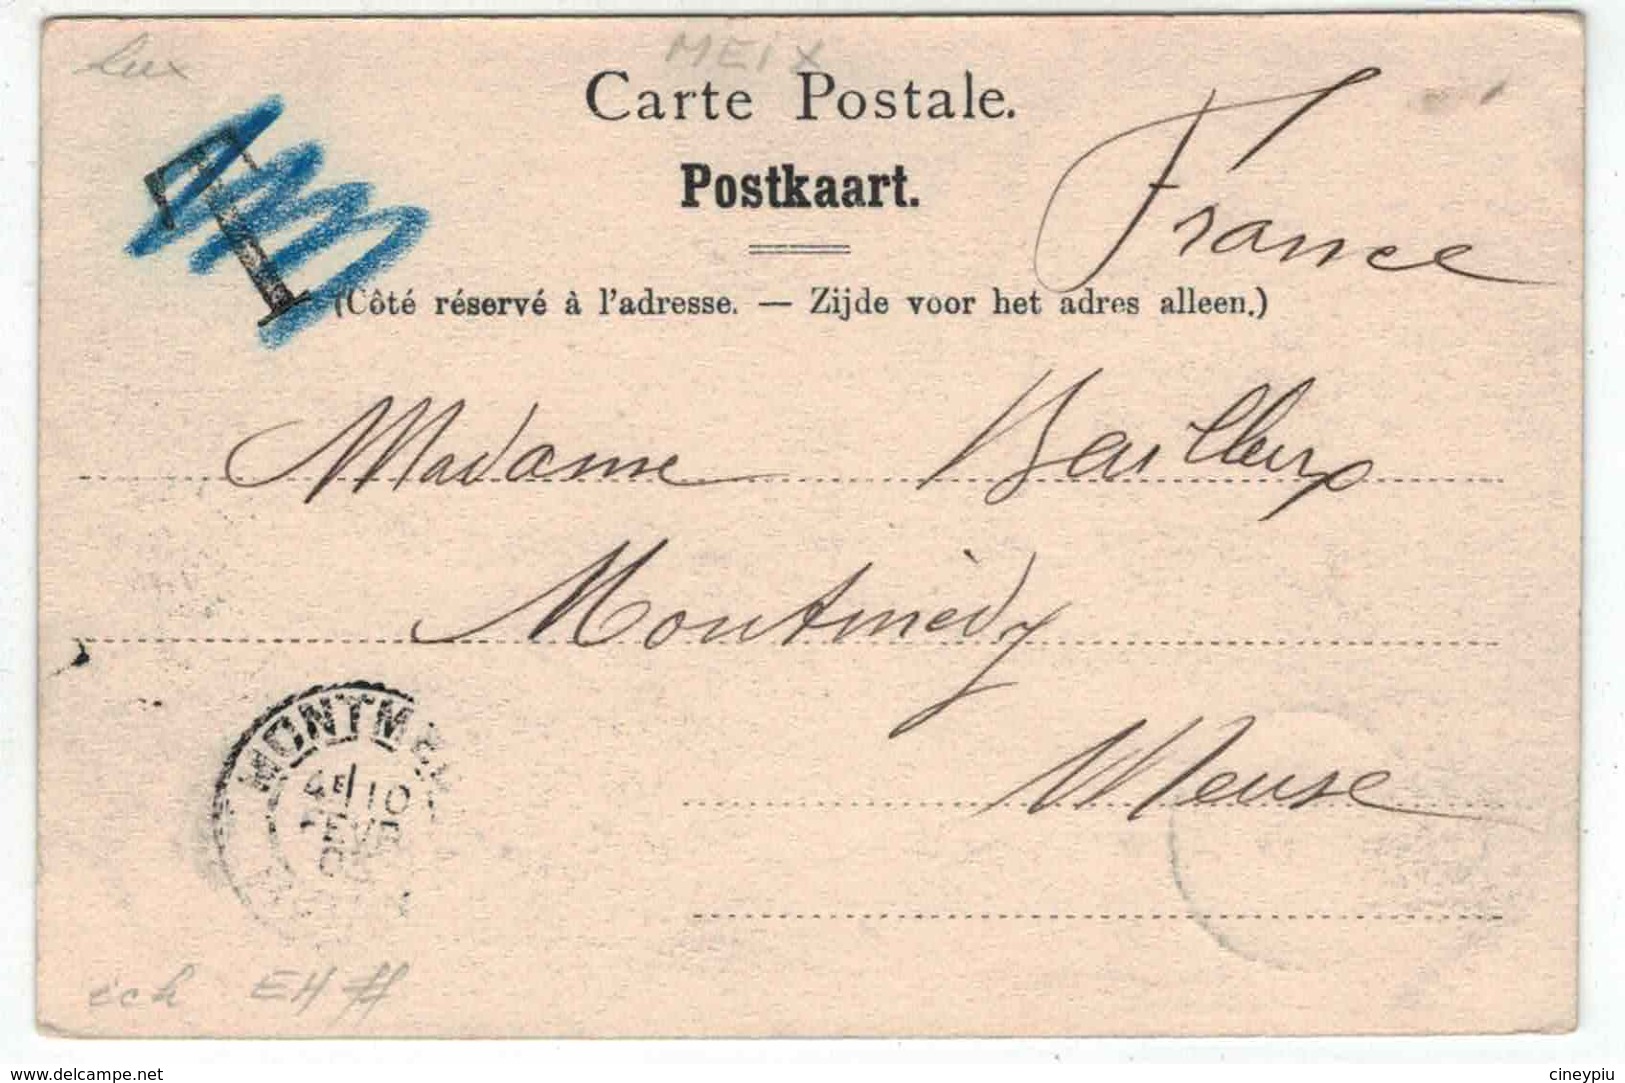 Lux
MEIX
Carte Postale.
Postkaart.
France
T
(Côté réservé à l'adresse. — Zijde voor het adres alleen.)
Madame
Montmédy
Meuse
MONTMÉDY
4E / 10
FEVR
ech EH
www.delcampe.net
cineypiu